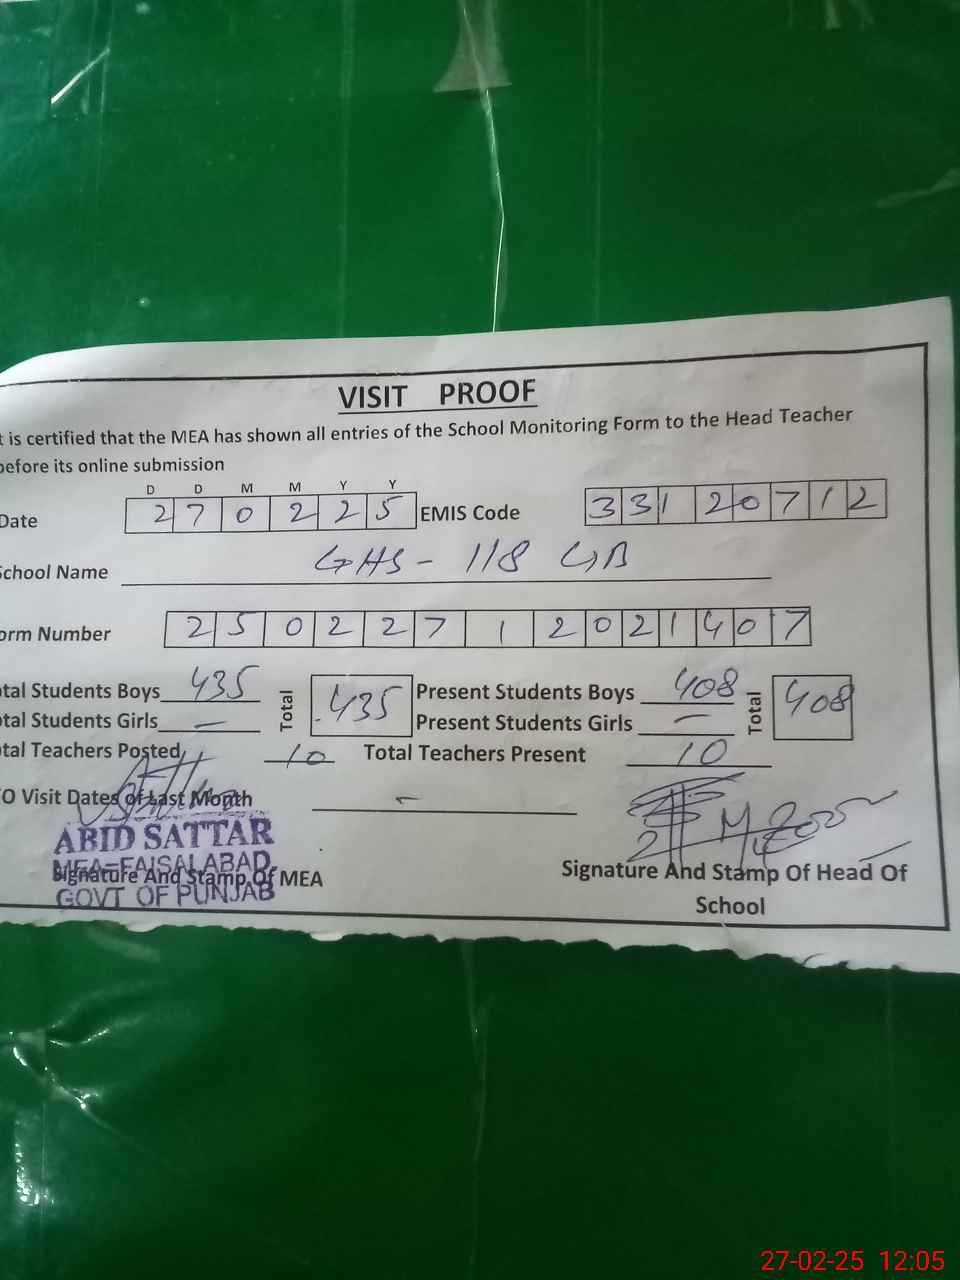 VISIT PROOF
t is certified that the MEA has shown all entries of the School Monitoring Form to the Head Teacher
before its online submission
D D M M Y Y
Date 2 7 0 2 2 5 EMIS Code 3 3 1 2 0 7 1 2
School Name GHS - 118 GB
orm Number 2 5 0 2 2 7 1 2 0 2 1 4 0 7
otal Students Boys 435 Total 435 Present Students Boys 408 Total 408
otal Students Girls — Present Students Girls —
otal Teachers Posted 10 Total Teachers Present 10
O Visit Dates of Last Month -
ABID SATTAR
MEA-FAISALABAD
GOVT OF PUNJAB
Signature And Stamp Of MEA
Signature And Stamp Of Head Of
School
27-02-25 12:05